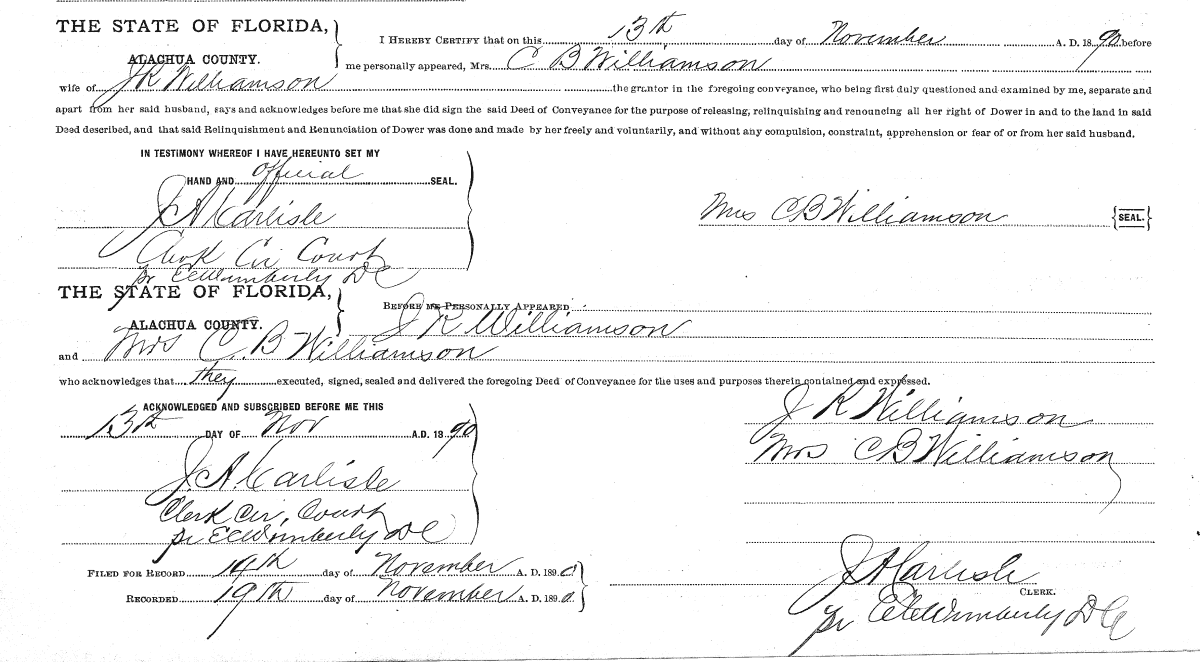 THE STATE OF FLORIDA,
ALACHUA COUNTY.
I HEREBY CERTIFY that on this 13th day of November A. D. 1890 before
me personally appeared, Mrs. C B Williamson
wife of J R Williamson the grantor in the foregoing conveyance, who being first duly questioned and examined by me, separate and
apart from her said husband, says and acknowledges before me that she did sign the said Deed of Conveyance for the purpose of releasing, relinquishing and renouncing all her right of Dower in and to the land in said
Deed described, and that said Relinquishment and Renunciation of Dower was done and made by her freely and voluntarily, and without any compulsion, constraint, apprehension or fear of or from her said husband.
IN TESTIMONY WHEREOF I HAVE HEREUNTO SET MY
HAND AND official SEAL.
J A Carlisle
Clerk Cir Court
pr E E Wimberly D C
Mrs C B Williamson {SEAL.}
THE STATE OF FLORIDA,
ALACHUA COUNTY.
BEFORE ME PERSONALLY APPEARED
J R Williamson
and Mrs C. B Williamson
who acknowledges that they executed, signed, sealed and delivered the foregoing Deed of Conveyance for the uses and purposes therein contained and expressed.
ACKNOWLEDGED AND SUBSCRIBED BEFORE ME THIS
13th DAY OF Nov A.D. 1890
J. A. Carlisle
Clerk Cir. Court
pr E E Wimberly D C
J R Williamson
Mrs C B Williamson
FILED FOR RECORD 14th day of November A. D. 1890
RECORDED 19th day of November A. D. 1890
J A Carlisle
CLERK.
pr E E Wimberly D C